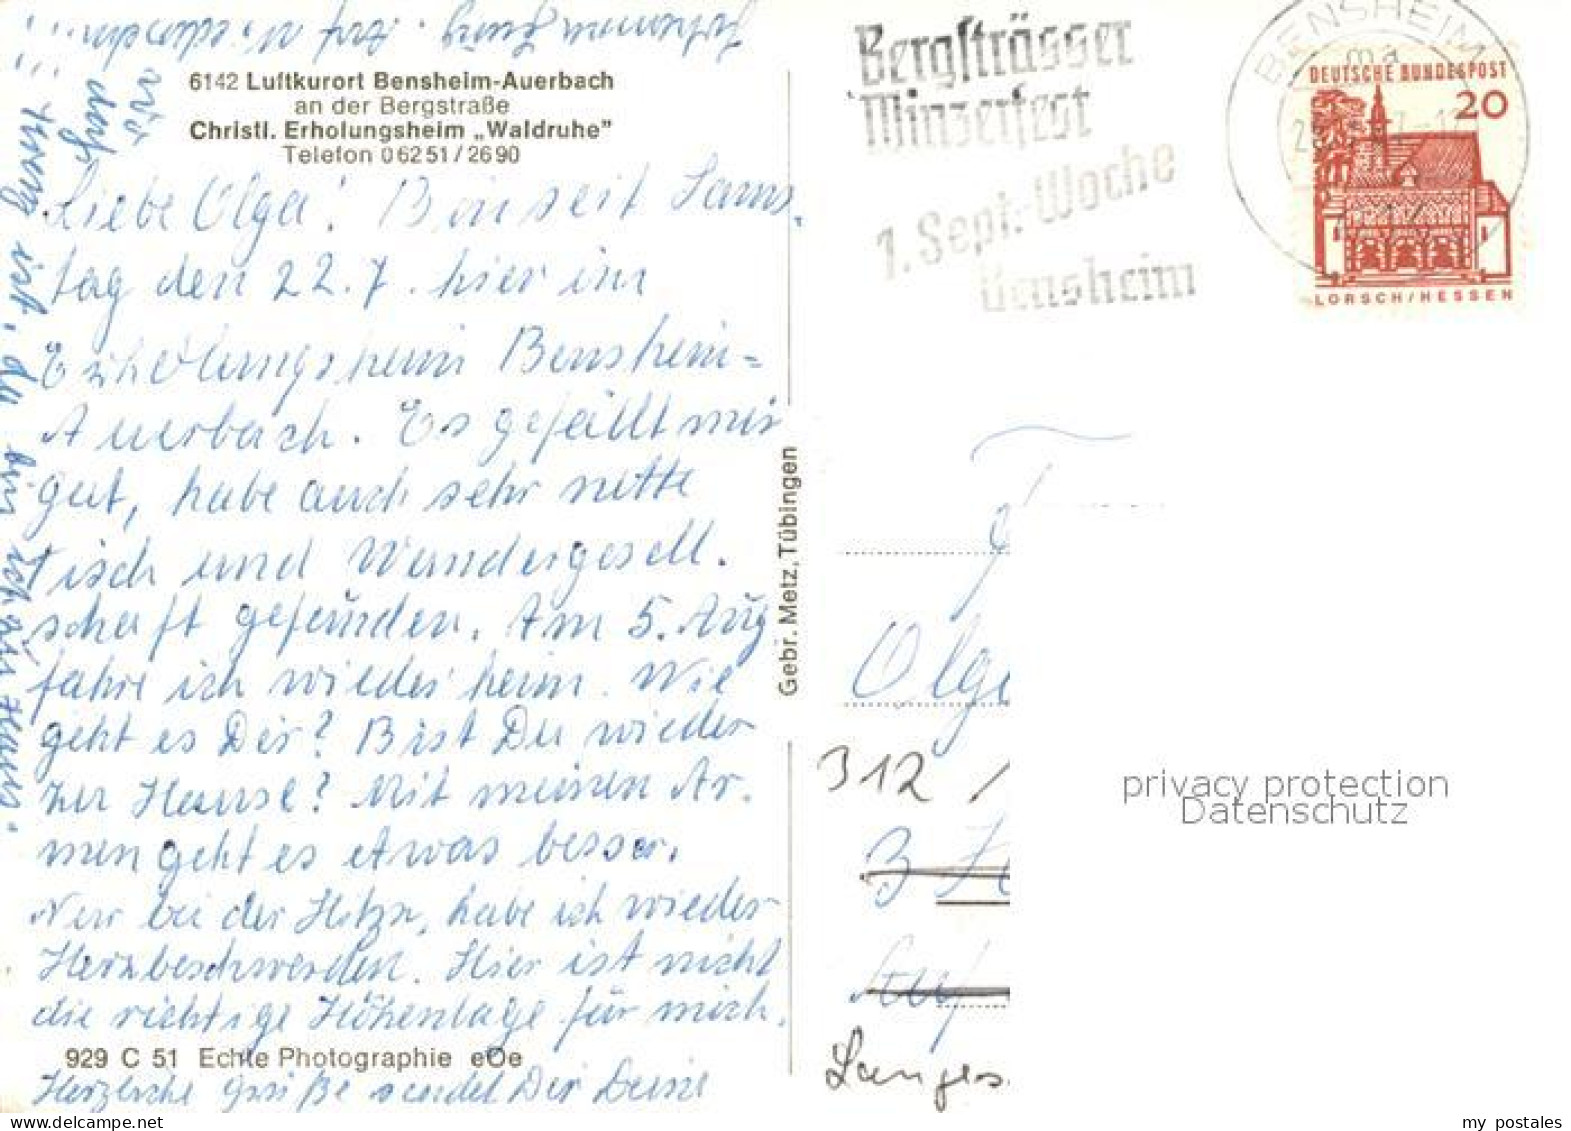 6142 Luftkurort Bensheim-Auerbach
an der Bergstraße
Christl. Erholungsheim „Waldruhe"
Telefon 06251/2690
Liebe Olga! Bin seit Sams-
tag den 22.7. hier im
Erholungsheim Bensheim=
Auerbach. Es gefällt mir
gut, habe auch sehr nette
Tisch und Wandergesell.
schaft gefunden. Am 5. Aug
fahre ich wieder heim. Wie
geht es Dir? Bist Du wieder
zu Hause? Mit meinen Ar.
men geht es etwas besser.
Nur bei der Hitze, habe ich wieder
Herzbeschwerden. Hier ist nicht
die richtige Höhenlage für mich.
929 C 51 Echte Photographie eOe
Herzliche Grüße sendet Dir Deine
Auf Wiedersehen
Gebr. Metz, Tübingen
Bergsträsser
Winzerfest
1. Sept.-Woche
Bensheim
BENSHEIM
DEUTSCHE BUNDESPOST
20
LORSCH/HESSEN
Olga
312
3
Langes
privacy protection
Datenschutz
www.delcampe.net
my_postales